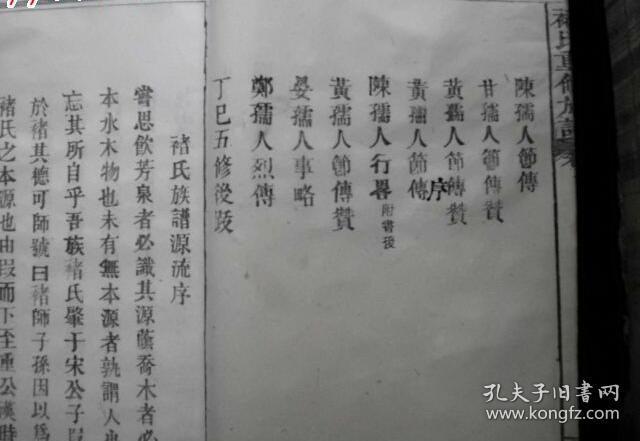 陳孺人節傳
甘孺人節傳贊
黃孺人節傳贊
黃孺人節傳序
陳孺人行畧附書後
黃孺人節傳贊
晏孺人事略
鄭孺人烈傳
丁巳五修後跋
褚氏族譜源流序
嘗思飲芳泉者必識其源蔭喬木者必
本水木物也未有無本源者孰謂人也
忘其所自乎吾族褚氏肇于宋公子段
於褚其德可師號曰褚師子孫因以爲
褚氏之本源也由段而下至重公漢時
孔夫子旧书网
www.kongfz.com